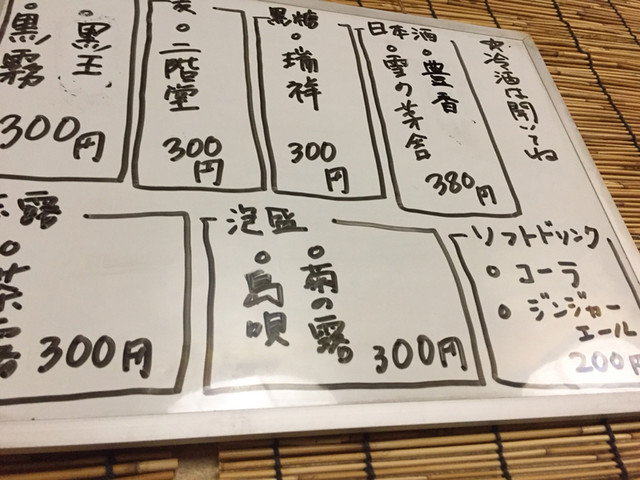 ☆冷酒は聞いてね
日本酒
・豊香
・雪の茅舎
380円
黒糖
・瑞祥
300円
麦
・二階堂
300円
・黒王
・黒霧
300円
ソフトドリンク
・コーラ
・ジンジャー
エール
200円
泡盛
・菊の露
・島唄
300円
露
300円